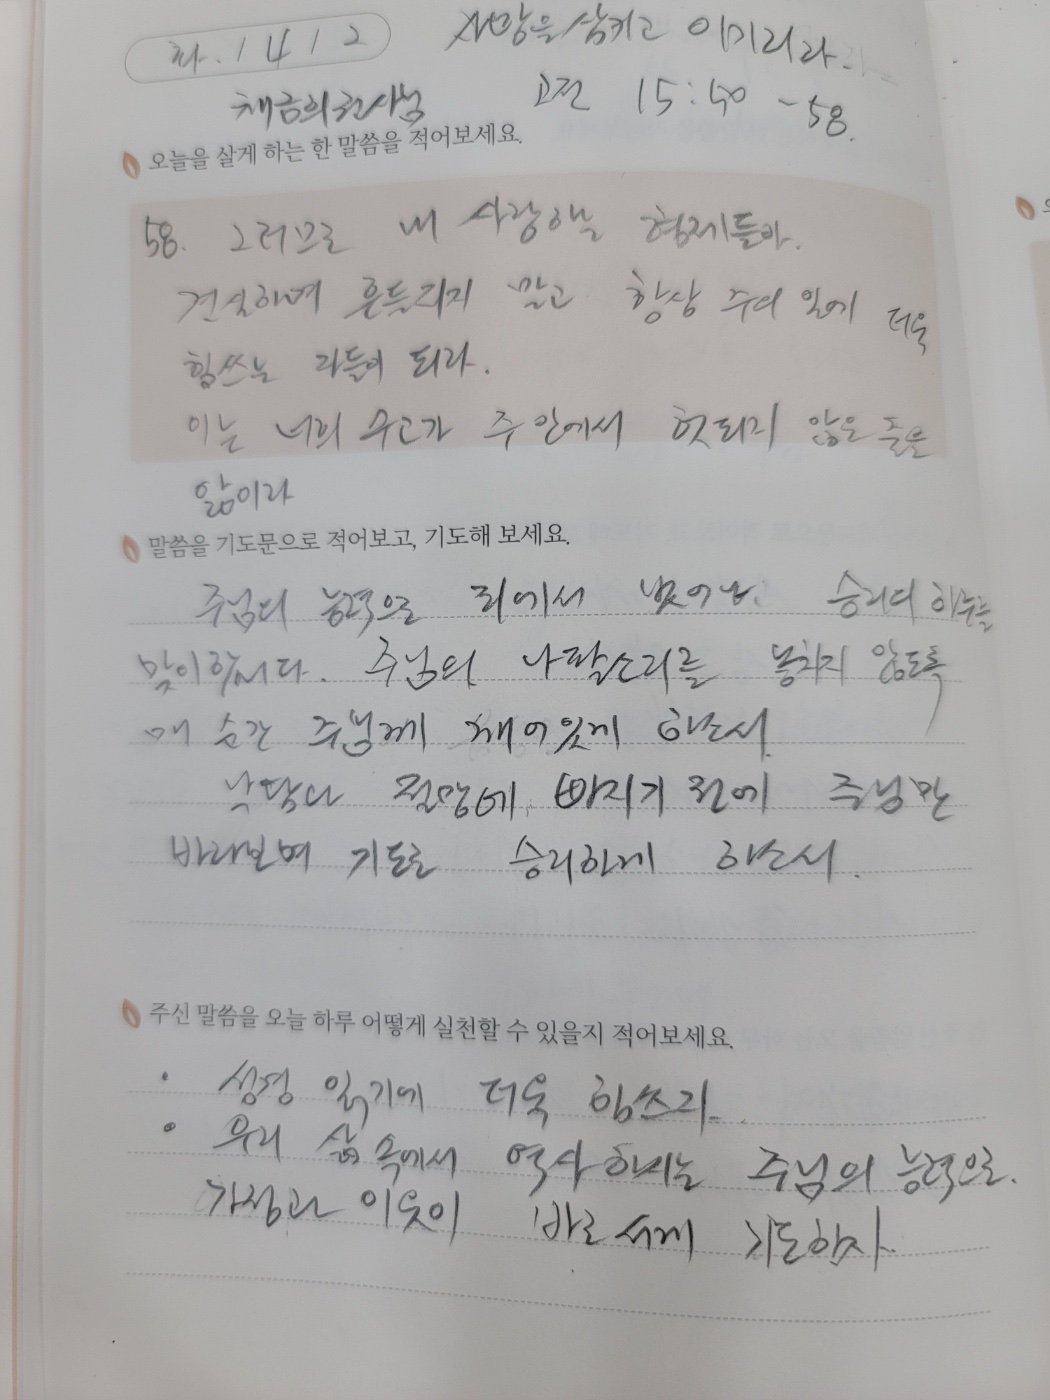 화. 1 4 1 2
사망을 삼키고 이기리라.
채금희권사님
고전 15:50 - 58.
오늘을 살게 하는 한 말씀을 적어보세요.
58. 그러므로 내 사랑하는 형제들아.
견실하며 흔들리지 말고 항상 주의 일에 더욱
힘쓰는 자들이 되라.
이는 너희 수고가 주 안에서 헛되지 않은 줄을
앎이라
말씀을 기도문으로 적어보고, 기도해 보세요.
주님의 능력으로 죄에서 벗어나 승리의 하루를
맞이합니다. 주님의 나팔소리를 놓치지 않도록
매 순간 주님께 깨어있게 하소서.
낙담과 절망에 빠지기 전에 주님만
바라보며 기도로 승리하게 하소서.
주신 말씀을 오늘 하루 어떻게 실천할 수 있을지 적어보세요.
• 성경 읽기에 더욱 힘쓰라.
• 우리 삶 속에서 역사하시는 주님의 능력으로.
가정과 이웃이 바로 서게 기도하자.